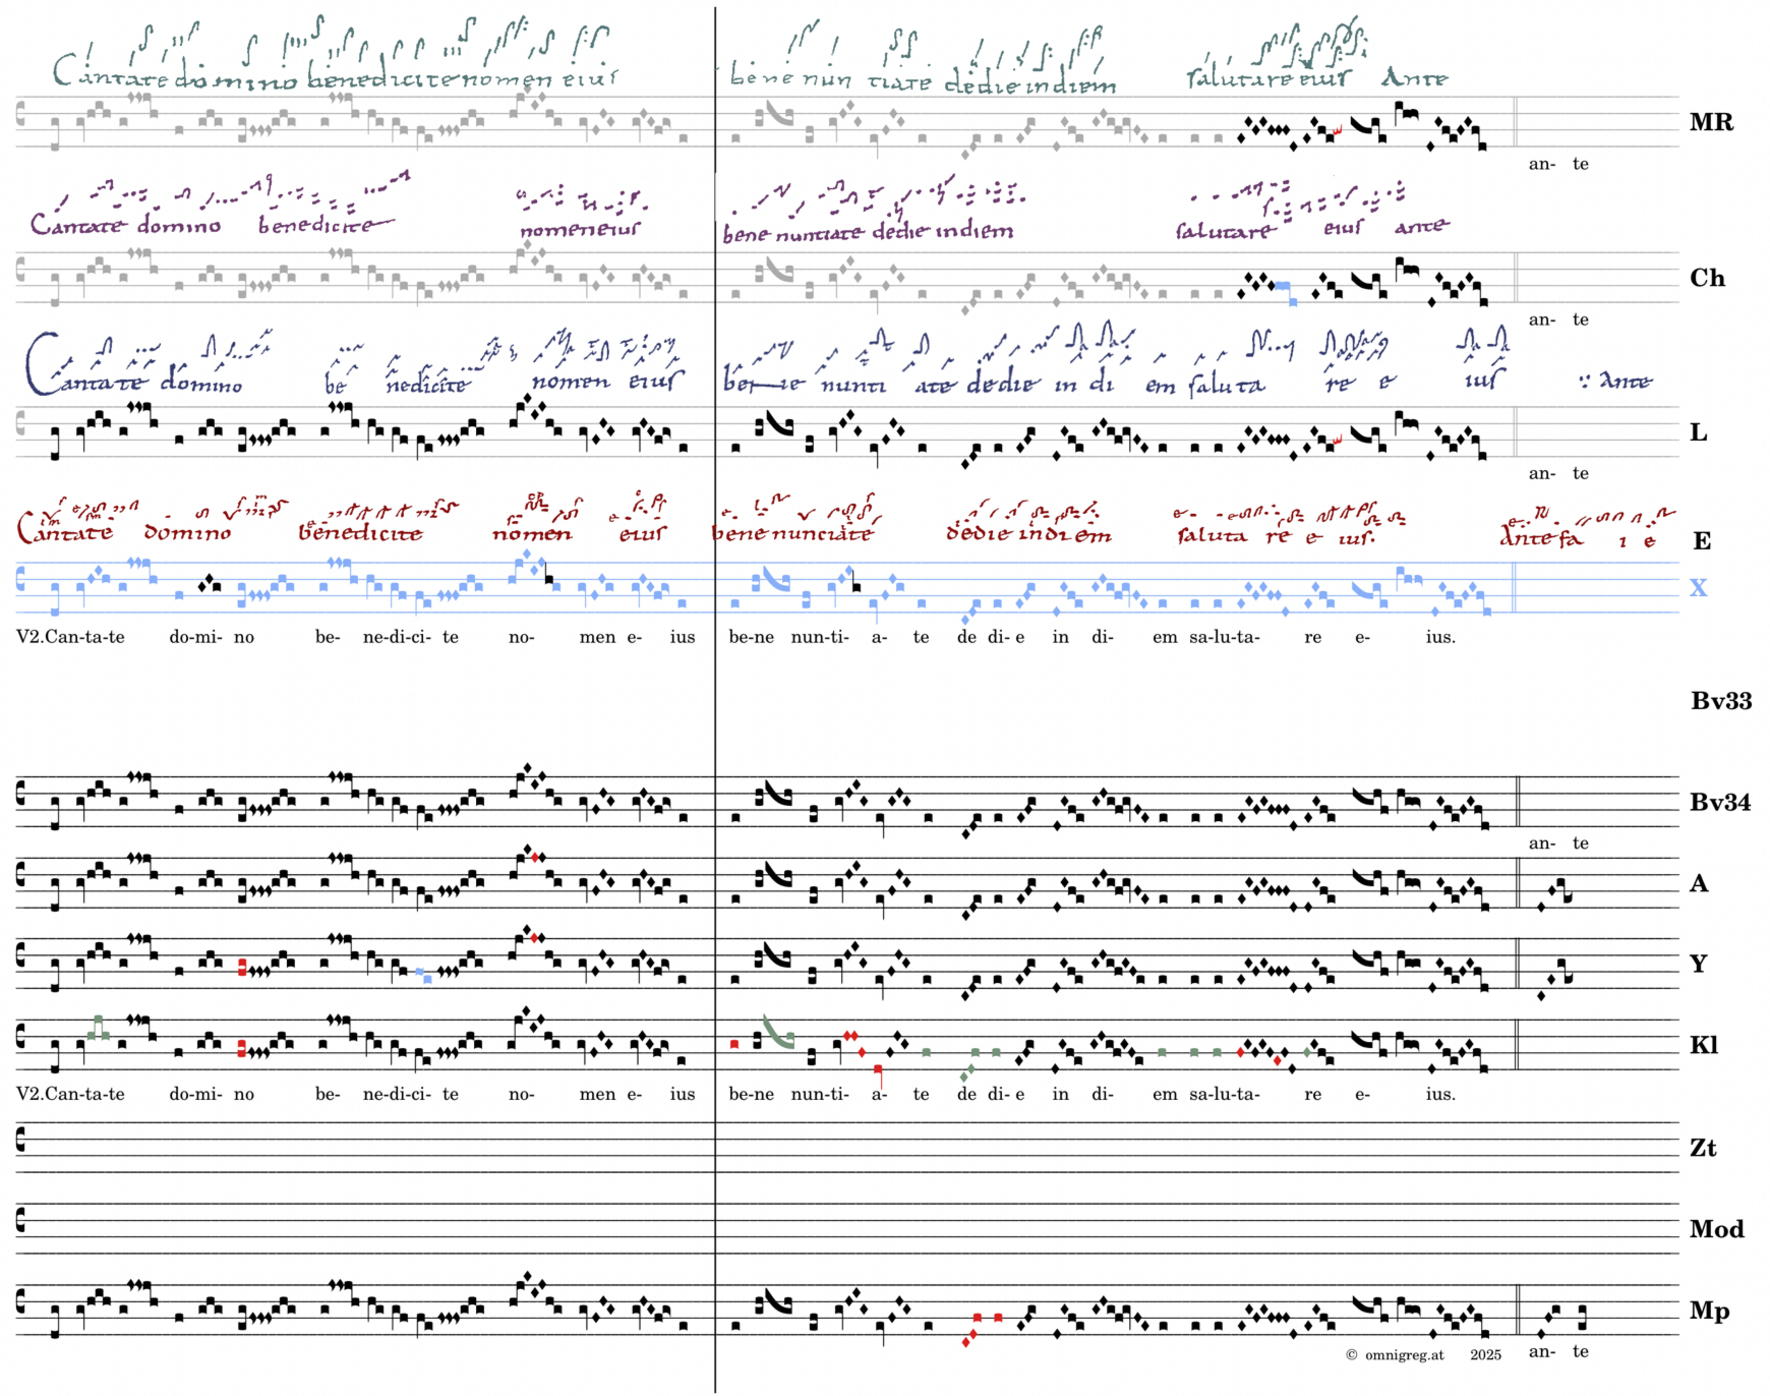 Cantate domino benedicite nomen eius bene nun tiate dedie indiem salutare eius Ante
MR
an- te
Cantate domino benedicite nomen eius bene nuntiate dedie indiem salutare eius ante
Ch
an- te
Cantate domino be nedicite nomen eius bene nunti ate dedie in di em saluta re e ius : Ante
L
an- te
Cantate domino benedicite nomen eius bene nunciate dedie indi em saluta re e ius. Ante fa i e
E
X
V2.Can-ta-te do-mi- no be- ne-di-ci- te no- men e- ius be-ne nun-ti- a- te de di- e in di- em sa-lu-ta- re e- ius.
Bv33
Bv34
an- te
A
Y
Kl
V2.Can-ta-te do-mi- no be- ne-di-ci- te no- men e- ius be-ne nun-ti- a- te de di- e in di- em sa-lu-ta- re e- ius.
Zt
Mod
Mp
an- te
© omnigreg.at 2025